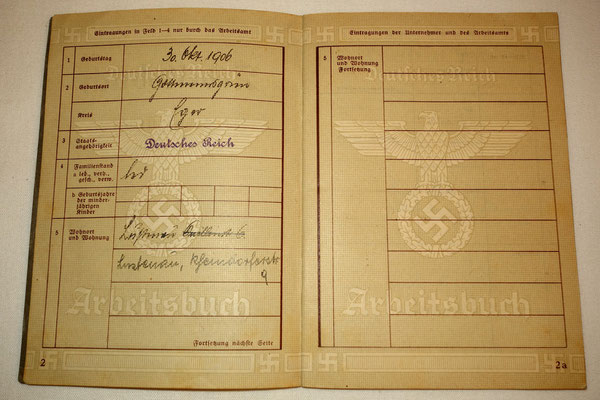 Eintragungen in Feld 1—4 nur durch das Arbeitsamt
1 Geburtstag 30. Okt. 1906
2 Geburtsort
Kreis Eger
3 Staats-
angehörigkeit Deutsches Reich
4 Familienstand
a led., verh.,
gesch., verw. led
b Geburtsjahre
der minder-
jährigen
Kinder
5 Wohnort
und Wohnung Lustenau
Lustenau,
9
Fortsetzung nächste Seite
Deutsches Reich
Arbeitsbuch
2
Eintragungen der Unternehmer und des Arbeitsamts
5 Wohnort
und Wohnung
Fortsetzung
Deutsches Reich
Arbeitsbuch
2a